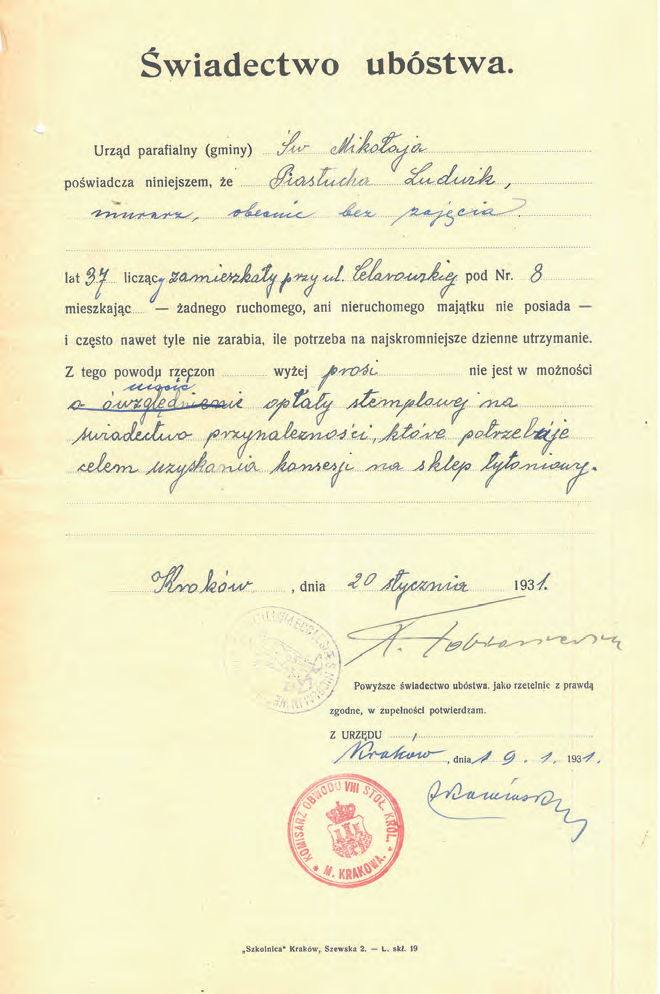 Świadectwo ubóstwa.
Urząd parafialny (gminy) Św Mikołaja
poświadcza niniejszem, że Piastucha Ludwik,
murarz, obecnie bez zajęcia.
lat 37 licząc zamieszkały przy ul. pod Nr. 8
mieszkając — żadnego ruchomego, ani nieruchomego majątku nie posiada —
i często nawet tyle nie zarabia, ile potrzeba na najskromniejsze dzienne utrzymanie.
Z tego powodu rzeczon wyżej prosi nie jest w możności
uiścić
o opłaty stemplowej na
świadectwo przynależności, które potrzebuje
celem uzyskania konsesji na sklep tytoniowy.
Kraków, dnia 20 stycznia 1931.
Powyższe świadectwo ubóstwa. jako rzetelnie z prawdą
zgodne, w zupełności potwierdzam.
Z URZĘDU
Kraków, dnia 19. 1. 1931.
KOMISARZ OBWODU VIII STOŁ. KRÓL.
M. KRAKOWA.
„Szkolnica" Kraków, Szewska 2. — L. skł. 19